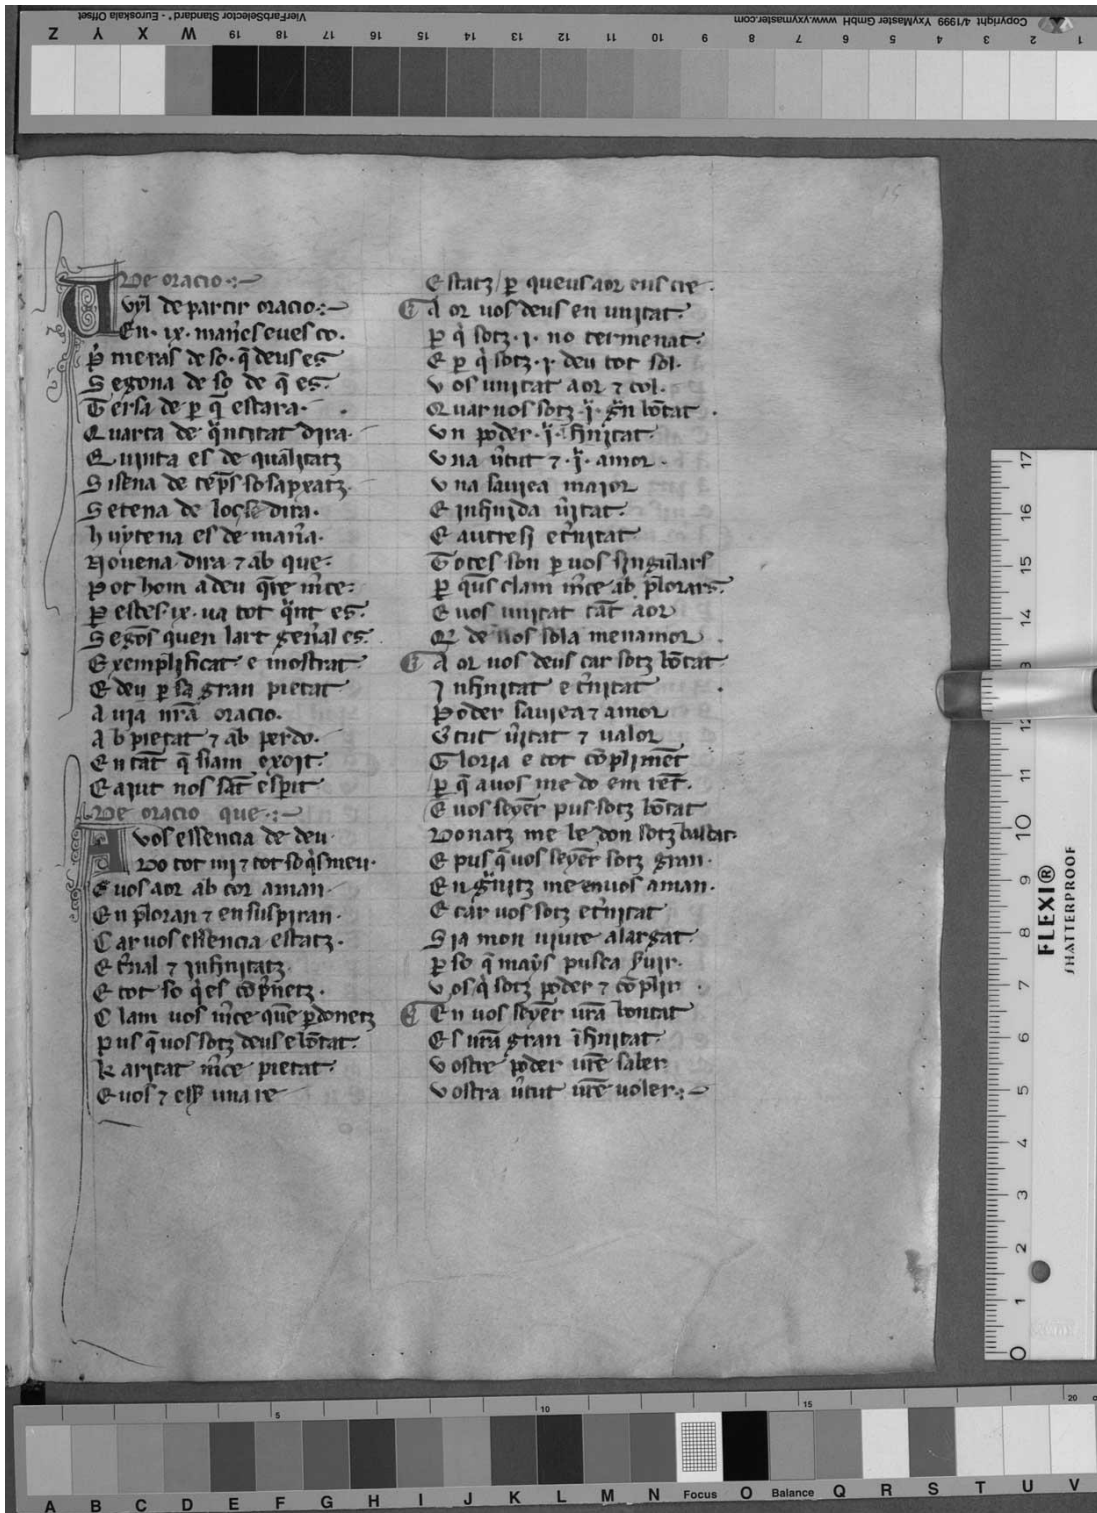 VierFarbSelector Standard* - Euroskala Offset
Copyright 4/1999 YxyMaster GmbH www.yxymaster.com
Z Y X W 19 18 17 16 15 14 13 12 11 10 9 8 7 6 5 4 3 2 1
15
De oracio
Vuyl de partir oracio
En .ix. man̄es e ues co.
P̄meras de so q̄ deus es
Segona de so de q̄ es.
Tersa de p̱ q̄ estara.
Quarta de q̄ntitat dira.
Quinta es de qualitatz
Sisena de tēps so sapxatz.
Setena de loch se dira.
huytena es de man̄a.
Nouena dira ⁊ ab que
Pot hom a deu q̄re m̄ce
P̱ estes .ix. ua tot q̄nt es.
Segōs quen lart gen̄al es.
Exemplificat e mostrat
E deu p̱ sa gran pietat
Auja nr̄a oracio.
Ab pietat ⁊ ab perdo.
En tāt q̄ siam exoit
E ajut nos sāt espit
De oracio que
A vos essencia de deu
Do tot mi ⁊ tot so q̄s meu.
E uos aor ab cor aman
En ploran ⁊ en suspiran.
Car uos essencia estatz.
Et̄nal ⁊ jnfinitatz
E tot so q̄ es cōp̄netz.
Clam uos m̄ce quem p̱donetz
Pus q̄ uos sotz deus e bōtat.
Karitat m̄ce pietat
E uos ⁊ ess̄ una re
Estatz p̱ queus aor eus cre.
Aor uos deus en unitat
P̱ q̄ sotz .j. no termenat.
E p̱ q̄ sotz .j. deu tot sol.
Vos unitat aor ⁊ col.
Quar uos sotz .j̄. gn̄ bōtat.
Vn poder .j̄. jnfinitat
Vna ūtut ⁊ .j̄. amor.
Vna sauiea major
E jnfinida ūitat.
E autresj et̄nitat
Totes son p̱ uos singulars
P̱ q̄us clam m̄ce ab plorars.
E uos unitat tāt aor
Q̄ de uos sola menamor.
Aor uos deus car sotz bōtat
Jnfinitat et̄nitat
Poder sauiea ⁊ amor
Ūtut ūitat ⁊ ualor
Gloria e tot cōplimēt
P̱ q̄ a uos me do em rēt.
E uos seyēr pus sotz bōtat
Donatz me le don sotz bastat.
E pus q̄ uos seyēr sotz gran.
Engrāitz me en uos aman.
E car uos sotz et̄nitat
Sia mon uiure alargat.
P̱ so q̄ mays pusca s̄uir.
Vos q̄ sotz poder ⁊ cōplir
En uos seyēr ur̄a bontat
Es ur̄a gran īfinitat
Vostre poder ur̄e saber
Vostra ūtut ur̄e uoler
17 16 15 14 13 12 11 10 9 8 7 6 5 4 3 2 1 0
FLEXI®
SHATTERPROOF
5 10 15 20
A B C D E F G H I J K L M N Focus O Balance Q R S T U V